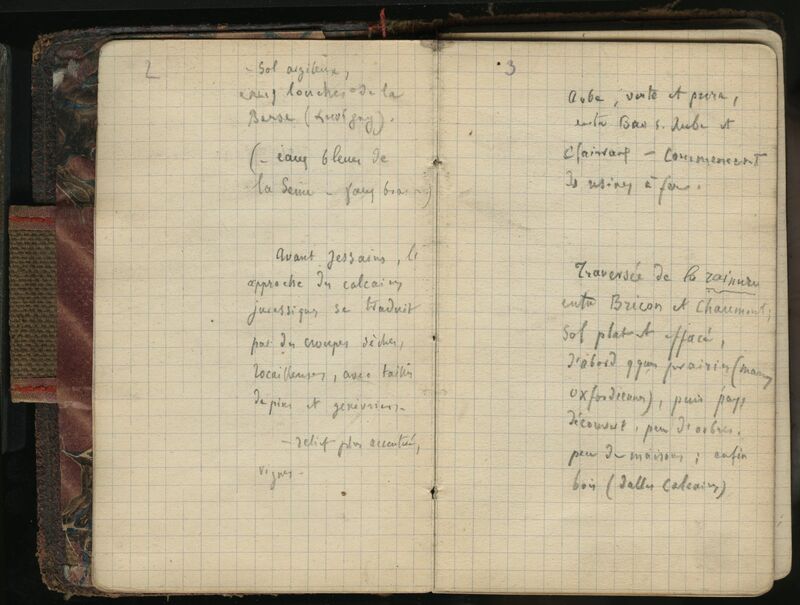 2
- Sol argileux,
eaux louches de la
Barse (Lusigny).
(- eaux bleues de
la Seine -
Avant Jessains, l'
approche des calcaires
jurassiques se traduit
par des croupes sèches,
rocailleuses, avec taillis
de pins et genévriers -
- relief plus accentué,
vignes -
3
Aube, verte et pure,
entre Bar s. Aube et
Clairvaux - Commencent
les usines à fer.
Traversée de la rainure
entre Bricon et Chaumont;
Sol plat et effacé,
d'abord qques prairies (marnes
oxfordiennes), puis pays
découvert, peu d'arbres,
peu de maisons; enfin
bois (dalles calcaires)